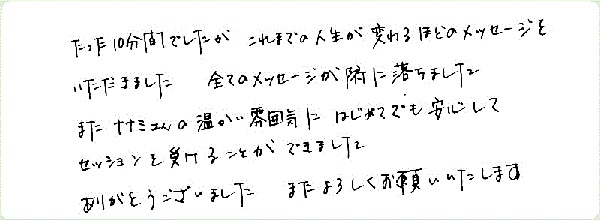 たった10分間でしたが これまでの人生が変わるほどのメッセージを
いただきました 全てのメッセージが腑に落ちました
また ナナミさんの温かい雰囲気に はじめてでも安心して
セッションを受けることができました
ありがとうございました またよろしくお願いいたします